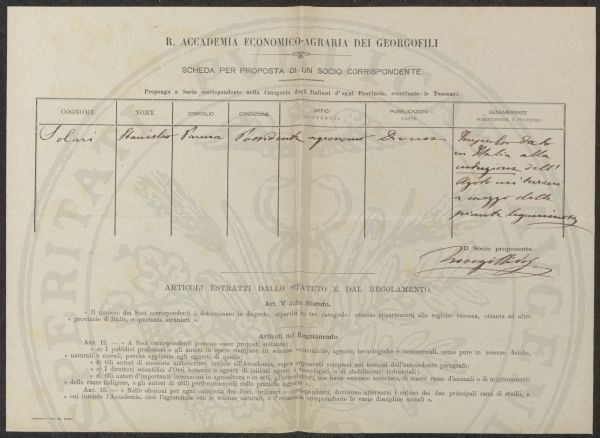 R. ACCADEMIA ECONOMICO-AGRARIA DEI GEORGOFILI
SCHEDA PER PROPOSTA DI UN SOCIO CORRISPONDENTE
Propongo a Socio corrispondente nella Categoria degli Italiani d'ogni Provincia, eccettuate le Toscane:
COGNOME NOME DOMICILIO CONDIZIONE UFFICI PUBBLICAZIONI BENEMERENZE
FATTE SCIENTIFICHE O PRATICHE
Solari Stanislao Parma Possidente agronomo Diverse Impulso dato
in Italia alla
induzione dell'
Azoto nei terreni
a mezzo delle
piante leguminose
Il Socio proponente
ARTICOLI ESTRATTI DALLO STATUTO E DAL REGOLAMENTO.
Art. V dello Statuto.
« Il numero dei Soci corrispondenti è determinato in dugento, ripartiti in tre categorie: ottanta appartenenti alla regione toscana, ottanta ad altre
« provincie d'Italia, e quaranta stranieri ».
Articoli del Regolamento.
ART. 12. — « A Soci corrispondenti possono esser proposti soltanto:
« a) I pubblici professori e gli autori di opere stampate in scienze economiche, agrarie, tecnologiche e commerciali, come pure in scienze fisiche,
« naturali e morali, purché applicate agli oggetti di quelle;
« b) Gli autori di memorie manoscritte, inviate all'Accademia, sopra argomenti compresi nei termini dell'antecedente paragrafo;
« c) I direttori scientifici d'Orti botanici e agrari, di istituti agrari e tecnologici, e di stabilimenti industriali;
« d) Gli autori d'importanti invenzioni in agricoltura o in arti, gl'introduttori, con buon successo accertato, di nuove razze d'animali o di miglioramenti
« delle razze indigene, e gli autori di utili perfezionamenti nelle pratiche agrarie ».
ART. 15. — « Nelle elezioni per ogni categoria dei Soci, ordinari o corrispondenti, dovranno alternarsi i cultori dei due principali rami di studii, a
« cui intende l'Accademia, cioè l'agronomia con le scienze naturali, e l'economia comprendente le varie discipline sociali ».